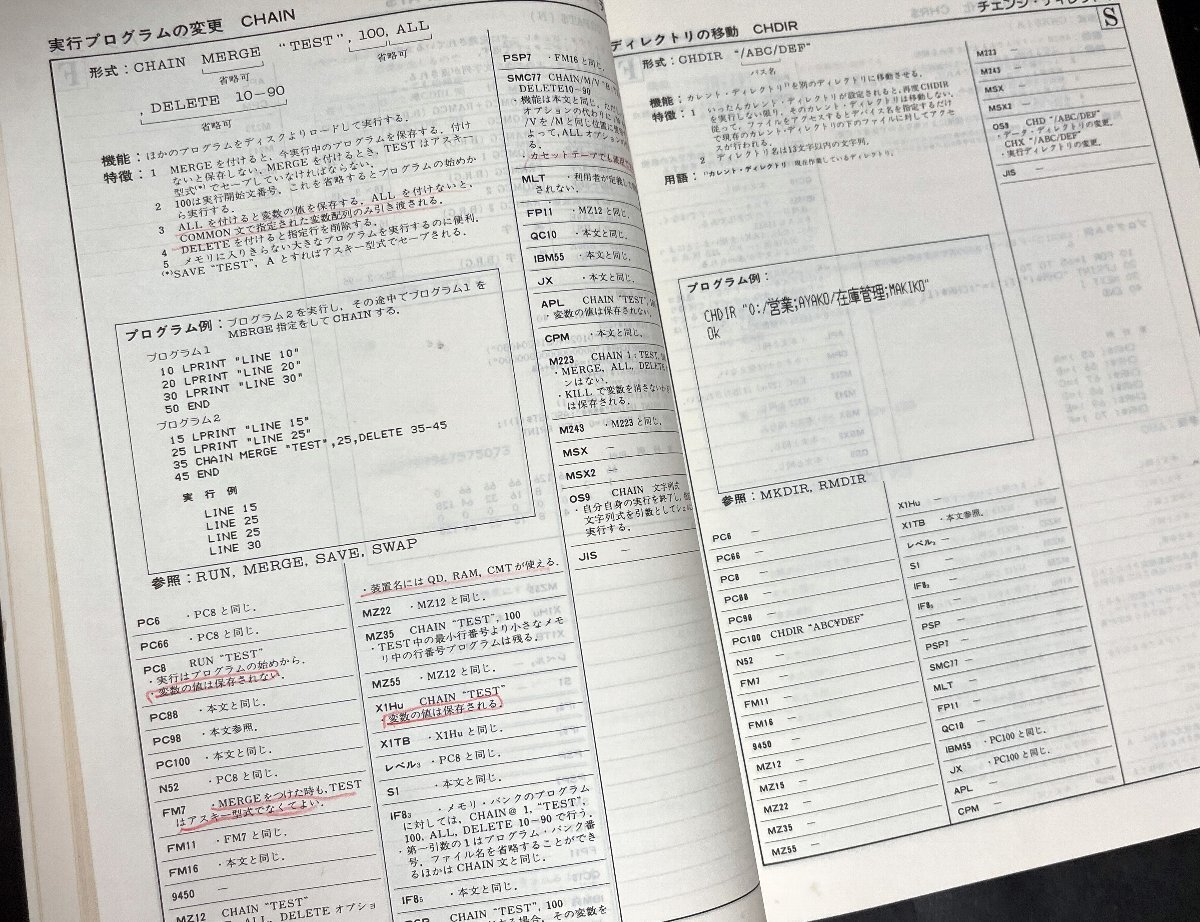 実行プログラムの変更 CHAIN
形式：CHAIN MERGE "TEST", 100, ALL
省略可 省略可
, DELETE 10－90
省略可
機能：ほかのプログラムをディスクよりロードして実行する．
特徴：1 MERGEを付けると，今実行中のプログラムを保存する．付け
ないと保存しない．MERGEを付けるとき，TESTはアスキー
型式(*)でセーブしていなければならない．
2 100は実行開始文番号．これを省略するとプログラムの始めか
ら実行する．
3 ALLを付けると変数の値を保存する．ALLを付けないと，
COMMON文で指定された変数配列のみ引き渡される．
4 DELETEを付けると指定行を削除する．
5 メモリに入りきらない大きなプログラムを実行するのに便利．
(*)SAVE "TEST", Aとすればアスキー型式でセーブされる．
プログラム例：プログラム2を実行し，その途中でプログラム1を
MERGE指定をしてCHAINする．
プログラム1
10 LPRINT "LINE 10"
20 LPRINT "LINE 20"
30 LPRINT "LINE 30"
50 END
プログラム2
15 LPRINT "LINE 15"
25 LPRINT "LINE 25"
35 CHAIN MERGE "TEST",25,DELETE 35-45
45 END
実行例
LINE 15
LINE 25
LINE 25
LINE 30
参照：RUN, MERGE, SAVE, SWAP
PC6 ・PC8と同じ．
PC66 ・PC8と同じ．
PC8 RUN "TEST"
・実行はプログラムの始めから．
・変数の値は保存されない．
PC88 ・本文と同じ．
PC98 ・本文参照．
PC100 ・本文と同じ．
N52 ・PC8と同じ．
FM7 ・MERGEをつけた時も，TEST
はアスキー型式でなくてよい．
FM11 ・FM7と同じ．
FM16 ・本文と同じ．
9450 －
MZ12 CHAIN "TEST"
ALL, DELETE オプショ
・装置名にはQD, RAM, CMTが使える．
MZ22 ・MZ12と同じ．
MZ35 CHAIN "TEST", 100
・TEST中の最小行番号より小さなメモ
リ中の行番号プログラムは残る．
MZ55 ・MZ12と同じ．
X1Hu CHAIN "TEST"
・変数の値は保存される
X1TB ・X1Huと同じ．
レベル3 ・PC8と同じ．
S1 ・本文と同じ．
IF83 ・メモリ・バンクのプログラム
に対しては，CHAIN@ 1, "TEST",
100, ALL, DELETE 10－90で行う．
・第一引数の1はプログラム・バンク番
号．ファイル名を省略することができ
るほかはCHAIN文と同じ．
IF85 ・本文と同じ．
CHAIN "TEST", 100
る場合，その変数を
PSP7 ・FM16と同じ．
SMC77 CHAIN/M/V
DELETE10－90
・機能は本文と同じ．ただし
オプションの代わりに
/Vを/Mと同じ位置に
よって，ALLオプション
る．
・カセットテープでも
MLT ・利用者が定義した
されない．
FP11 ・MZ12と同じ．
QC10 ・本文と同じ．
IBM55 ・本文と同じ．
JX ・本文と同じ．
APL CHAIN "TEST",
・変数の値は保存されない．
CPM ・本文と同じ．
M223 CHAIN 1：TEST,
・MERGE, ALL, DELETE
ンはない．
・KILLで変数を消さない
は保存される．
M243 ・M223と同じ．
MSX －
MSX2 －
OS9 CHAIN 文字列式
・自分自身の実行を終了し，
文字列式を引数として
実行する．
JIS －
ディレクトリの移動 CHDIR
チェンジ・ディレクト
S
形式：CHDIR "/ABC/DEF"
パス名
機能：カレント・ディレクトリ*)を別のディレクトリに移動させる．
特徴：1 いったんカレント・ディレクトリが設定されると，再度CHDIR
を実行しない限り，そのカレント・ディレクトリは移動しない．
従って，ファイルをアクセスするとデバイス名を指定するだけ
で現在のカレント・ディレクトリの下のファイルに対してアクセ
スが行われる．
2 ディレクトリ名は13文字以内の文字列．
用語：*)カレント・ディレクトリ：現在作業しているディレクトリ．
プログラム例：
CHDIR "0:/営業;AYAKO/在庫管理;MAKIKO"
Ok
参照：MKDIR, RMDIR
PC6 －
PC66 －
PC8 －
PC88 －
PC98 －
PC100 CHDIR "ABC¥DEF"
N52 －
FM7 －
FM11 －
FM16 －
9450 －
MZ12 －
MZ15 －
MZ22 －
MZ35 －
MZ55 －
X1Hu －
X1TB ・本文参照．
レベル3 －
S1 －
IF83 －
IF85 －
PSP －
PSP7 －
SMC77 －
MLT －
FP11 －
QC10 －
IBM55 ・PC100と同じ．
JX ・PC100と同じ．
APL －
CPM －
M223 －
M243 －
MSX －
MSX2 －
OS9 CHD "/ABC/DEF"
・データ・ディレクトリの変更．
CHX "/ABC/DEF"
・実行ディレクトリの変更．
JIS －